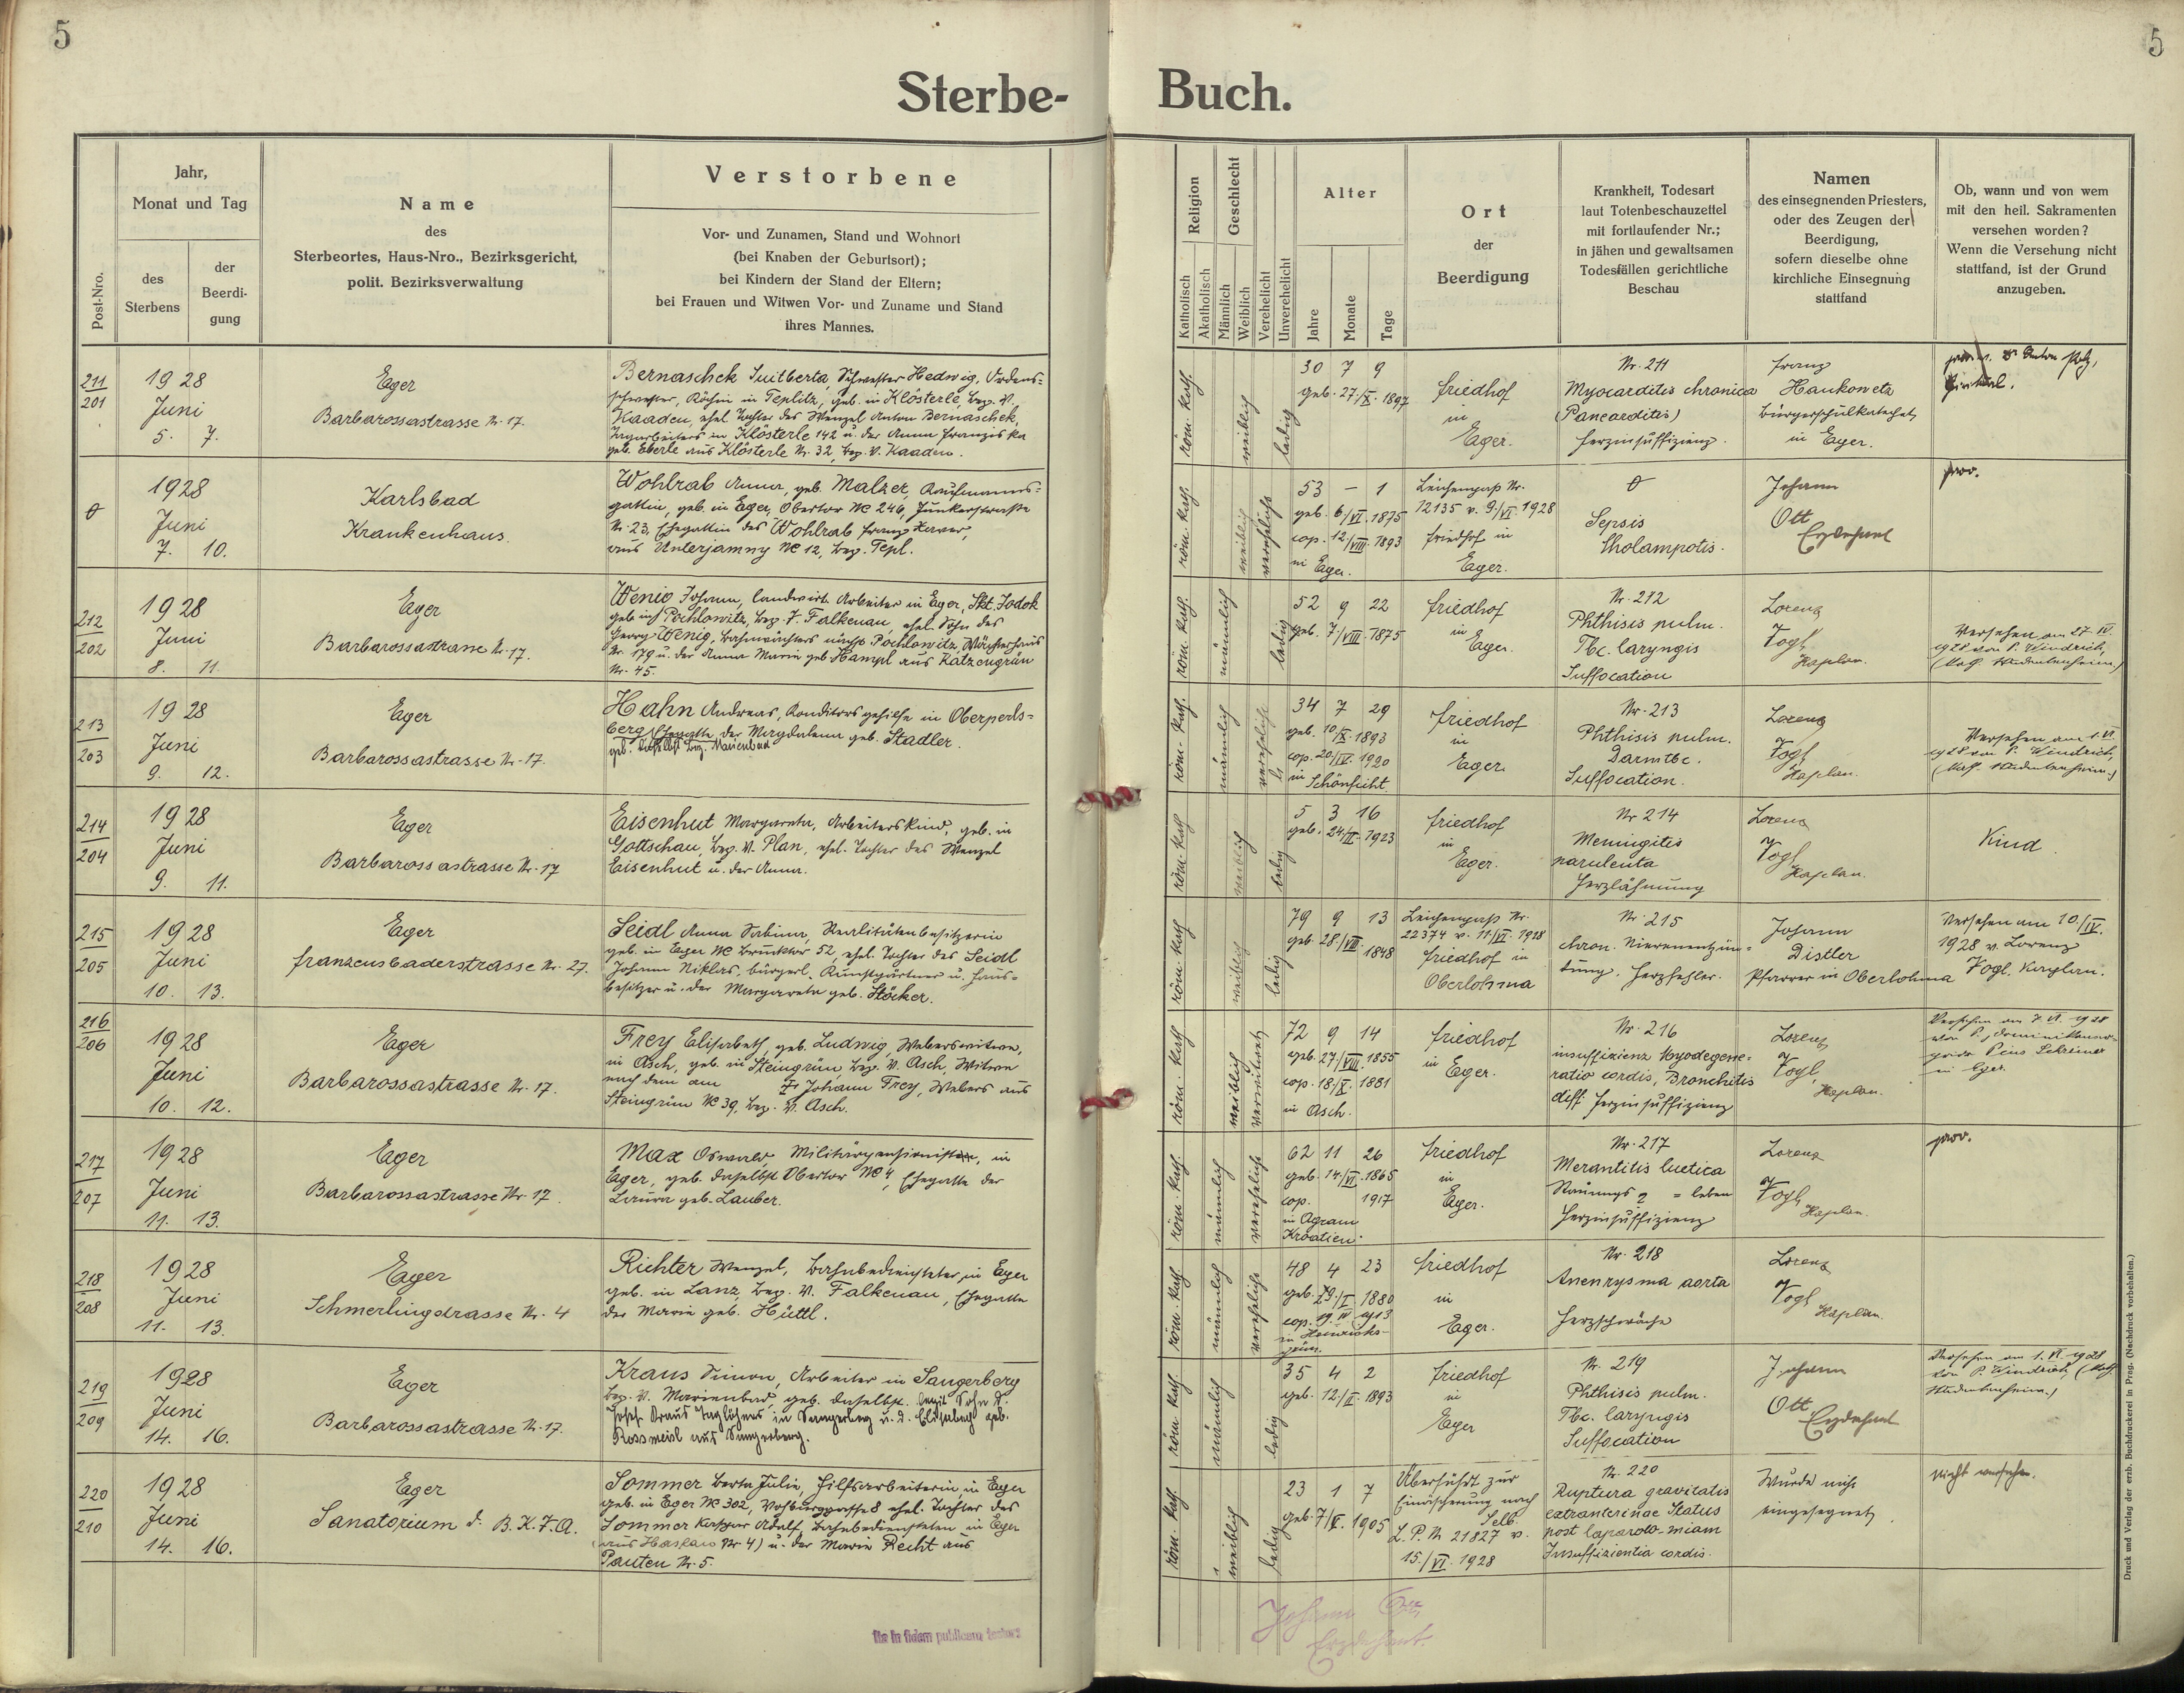 5
5
Sterbe- Buch.
Post-Nro.
Jahr,
Monat und Tag
des
Sterbens
der
Beerdi-
gung
Name
des
Sterbeortes, Haus-Nro., Bezirksgericht,
polit. Bezirksverwaltung
Verstorbene
Vor- und Zunamen, Stand und Wohnort
(bei Knaben der Geburtsort);
bei Kindern der Stand der Eltern;
bei Frauen und Witwen Vor- und Zuname und Stand
ihres Mannes.
Religion
Katholisch
Akatholisch
Geschlecht
Männlich
Weiblich
Verehelicht
Unverehelicht
Alter
Jahre
Monate
Tage
Ort
der
Beerdigung
Krankheit, Todesart
laut Totenbeschauzettel
mit fortlaufender Nr.;
in jähen und gewaltsamen
Todesfällen gerichtliche
Beschau
Namen
des einsegnenden Priesters,
oder des Zeugen der
Beerdigung,
sofern dieselbe ohne
kirchliche Einsegnung
stattfand
Ob, wann und von wem
mit den heil. Sakramenten
versehen worden?
Wenn die Versehung nicht
stattfand, ist der Grund
anzugeben.
211
201
1928
Juni
5. 7.
Eger
Barbarossastrasse Nr. 17.
Bernaschek Suitberta, Schwester Hedwig, Ordens=
schwester, Köchin in Teplitz, geb. in Klösterle, bez. V.
Kaaden, ehel. Tochter des Wenzel Anton Bernaschek,
Tagarbeiters in Klösterle 142 u. der Anna Franziska
geb. Eberle aus Klösterle Nr. 32, bez. V. Kaaden.
röm. kath.
weiblich
ledig
30 7 9
geb. 27/X. 1897
Friedhof
in
Eger.
Nr. 211
Myocarditis chronica
(Pancarditis)
Herzinsuffizienz.
Franz
Haukowetz
Bürgerschulkatechet
in Eger.
Anton
0
1928
Juni
7. 10.
Karlsbad
Krankenhaus.
Wohlrab Anna, geb. Malzer, Kaufmanns=
gattin, geb. in Eger, Obertor No 246, Junkerstraße
Nr. 23, Ehegattin des Wohlrab Franz Xaver,
aus Unterjamny No 12, bez. Tepl.
röm. kath.
weiblich
verehelicht
53 – 1
geb. 6/VI. 1875
cop. 12/VIII. 1893
in Eger.
Leichenpaß Nr.
12135 v. 9/VI. 1928
Friedhof in
Eger.
0
Sepsis
Cholampotis.
Johann
Ott
Erzdechant
prov.
212
202
1928
Juni
8. 11.
Eger
Barbarossastrasse Nr. 17.
Wenig Johann, landwirt. Arbeiter in Eger, Skt. Jodok
geb. in Pochlowitz, bez. V. Falkenau, ehel. Sohn des
Georg Wenig, Bahnwächters nächst Pochlowitz, Wächterhaus
Nr. 179 u. der Anna Maria geb. Hampl aus Katzengrün
Nr. 45.
röm. kath.
männlich
ledig
52 9 22
geb. 7/VIII. 1875
Friedhof
in
Eger.
Nr. 212
Phthisis pulm.
Tbc. laryngis
Suffocation
Lorenz
Vogl
Kaplan.
Versehen am 27. IV.
1928 von P. Windrich,
(Kath. Studentenheim.)
213
203
1928
Juni
9. 12.
Eger
Barbarossastrasse Nr. 17.
Hahn Andreas, Konditorsgehilfe in Oberperls=
berg, Ehegatte der Magdalena geb. Stadler.
geb. daselbst bez. Marienbad
röm. kath.
männlich
verehelicht
34 7 29
geb. 10/X. 1893
cop. 20/IV. 1920
in Schönficht.
Friedhof
in
Eger.
Nr. 213
Phthisis pulm.
Darmtbc.
Suffocation.
Lorenz
Vogl
Kaplan.
Versehen am 1. VI.
1928 von P. Windrich,
(Kath. Studentenheim.)
214
204
1928
Juni
9. 11.
Eger
Barbarossastrasse Nr. 17
Eisenhut Margareta, Arbeiterskind, geb. in
Gottschau, bez. V. Plan, ehel. Tochter des Wenzel
Eisenhut u. der Anna.
röm. kath
weiblich
ledig
5 3 16
geb. 24/II. 1923
Friedhof
in
Eger.
Nr 214
Meningitis
parulenta
Herzlähmung
Lorenz
Vogl
Kaplan.
Kind.
215
205
1928
Juni
10. 13.
Eger
Franzensbaderstrasse Nr. 27.
Seidl Anna Sabina, Realitätenbesitzerin
geb. in Eger No Brucktor 52, ehel. Tochter des Seidl
Johann Niklas, bürgerl. Kunstgärtner u. Haus-
besitzer u. der Margareta geb. Stöcker.
röm. kath
weiblich
ledig
79 9 13
geb. 28/VIII. 1848
Leichenpaß Nr.
22374 v. 11/VI. 1928
Friedhof in
Oberlohma
Nr. 215
chron. Nierenentzün=
dung. Herzfehler.
Johann
Distler
Pfarrer in Oberlohma
Versehen am 10/IV.
1928 v. Lorenz
Vogl. Kaplan.
216
206
1928
Juni
10. 12.
Eger
Barbarossastrasse Nr. 17.
Frey Elisabeth, geb. Ludwig, Weberswitwe,
in Asch, geb. in Steingrün bez. V. Asch, Witwe
nach dem am Johann Frey, Webers aus
Steingrün No 39, bez. V. Asch.
röm. kath
weiblich
verwitwet
72 9 14
geb. 27/VIII. 1855
cop. 18/X. 1881
in Asch.
Friedhof
in Eger.
Nr. 216
insuffizienz Myodegene=
ratio cordis, Bronchitis
diff. Herzinsuffizienz
Lorenz
Vogl,
Kaplan.
Versehen am 7. VI. 1928
von P. Dominikaner-
Pius Schreiner
in Eger.
217
207
1928
Juni
11. 13.
Eger
Barbarossastrasse Nr. 17.
Max Oswald, Militärpensionist, in
Eger, geb. daselbst Obertor No 4, Ehegatte der
Laura geb. Lauber.
röm. kath.
männlich
verehelicht
62 11 26
geb. 14/VI. 1865
cop. 1917
in Agram
Kroatien.
Friedhof
in
Eger.
Nr. 217
Merantitis luetica
Stauungs = leber
Herzinsuffizienz
Lorenz
Vogl
Kaplan.
prov.
218
208
1928
Juni
11. 13.
Eger
Schmerlingstrasse Nr. 4
Richter Wenzel, Bahnbediensteter in Eger
geb. in Lanz, bez. V. Falkenau, Ehegatte
der Maria geb. Hüttl.
röm. kath.
männlich
verehelicht
48 4 23
geb. 19/I 1880
cop. 19. IV 1913
in Heinrichs-
grün.
Friedhof
in
Eger.
Nr. 218
Anenrysma aorta
Herzschwäche
Lorenz
Vogl
Kaplan.
219
209
1928
Juni
14. 16.
Eger
Barbarossastrasse Nr. 17.
Kraus Simon, Arbeiter in Sangerberg
bez. V. Marienbad, geb. daselbst. legit. Sohn d.
Josef Kraus Taglöhners in Sangerberg u. d. Elisabeth geb.
Rossmeisl aus Sangerberg.
röm. kath.
männlich
ledig
35 4 2
geb. 12/II. 1893
Friedhof
in
Eger
Nr. 219
Phthisis pulm.
Tbc. laryngis
Suffocation
Johann
Ott
Erzdechant
Versehen am 1. VI. 1928
von P. Windrich, (Kath.
Studentenheim.)
220
210
1928
Juni
14. 16.
Eger
Sanatorium d. B. K. F. A.
Sommer Berta Julie, Hilfsarbeiterin in Eger
geb. in Eger No 302, Vohburggasse 8 ehel. Tochter des
Sommer Kaspar Adolf, Bahnbediensteten in Eger
(aus Haslau Nr 4) u. der Maria Recht aus
Pauten Nr. 5.
röm. kath.
weiblich
ledig
23 1 7
geb. 7/V. 1905
Überführt zur
Einäscherung nach
Selb.
L.P. Nr 21827 v.
15./VI. 1928
Nr. 220
Ruptura gravitatis
extrauterinae Status
post laparoto-miam
Insuffizientia cordis.
Wurde nicht
eingesegnet.
Nicht versehen.
in fidem publicam
Johann Ott
Erzdechant.
Druck und Verlag der erzb. Buchdruckerei in Prag. (Nachdruck vorbehalten.)